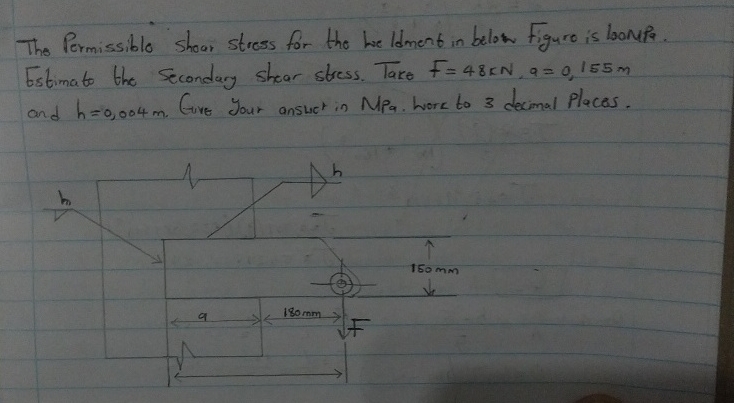 The Permissible shear stress for the weldment in below Figure is 100MPa.
Estimate the Secondary shear stress. Take F=48KN, a=0,155m
and h=0,004m. Give Your answer in MPa. Work to 3 decimal Places.
h
h
150mm
a
180mm
F